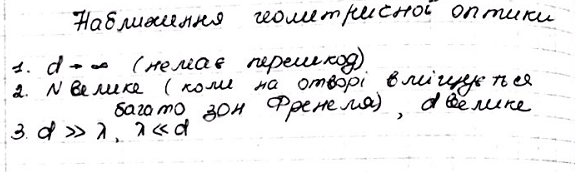 Наближення геометричної оптики
1. d → ∞ (немає перешкод)
2. N велике (коли на отворі вміщується
багато зон Френеля), d велике
3. d >> λ, λ << d